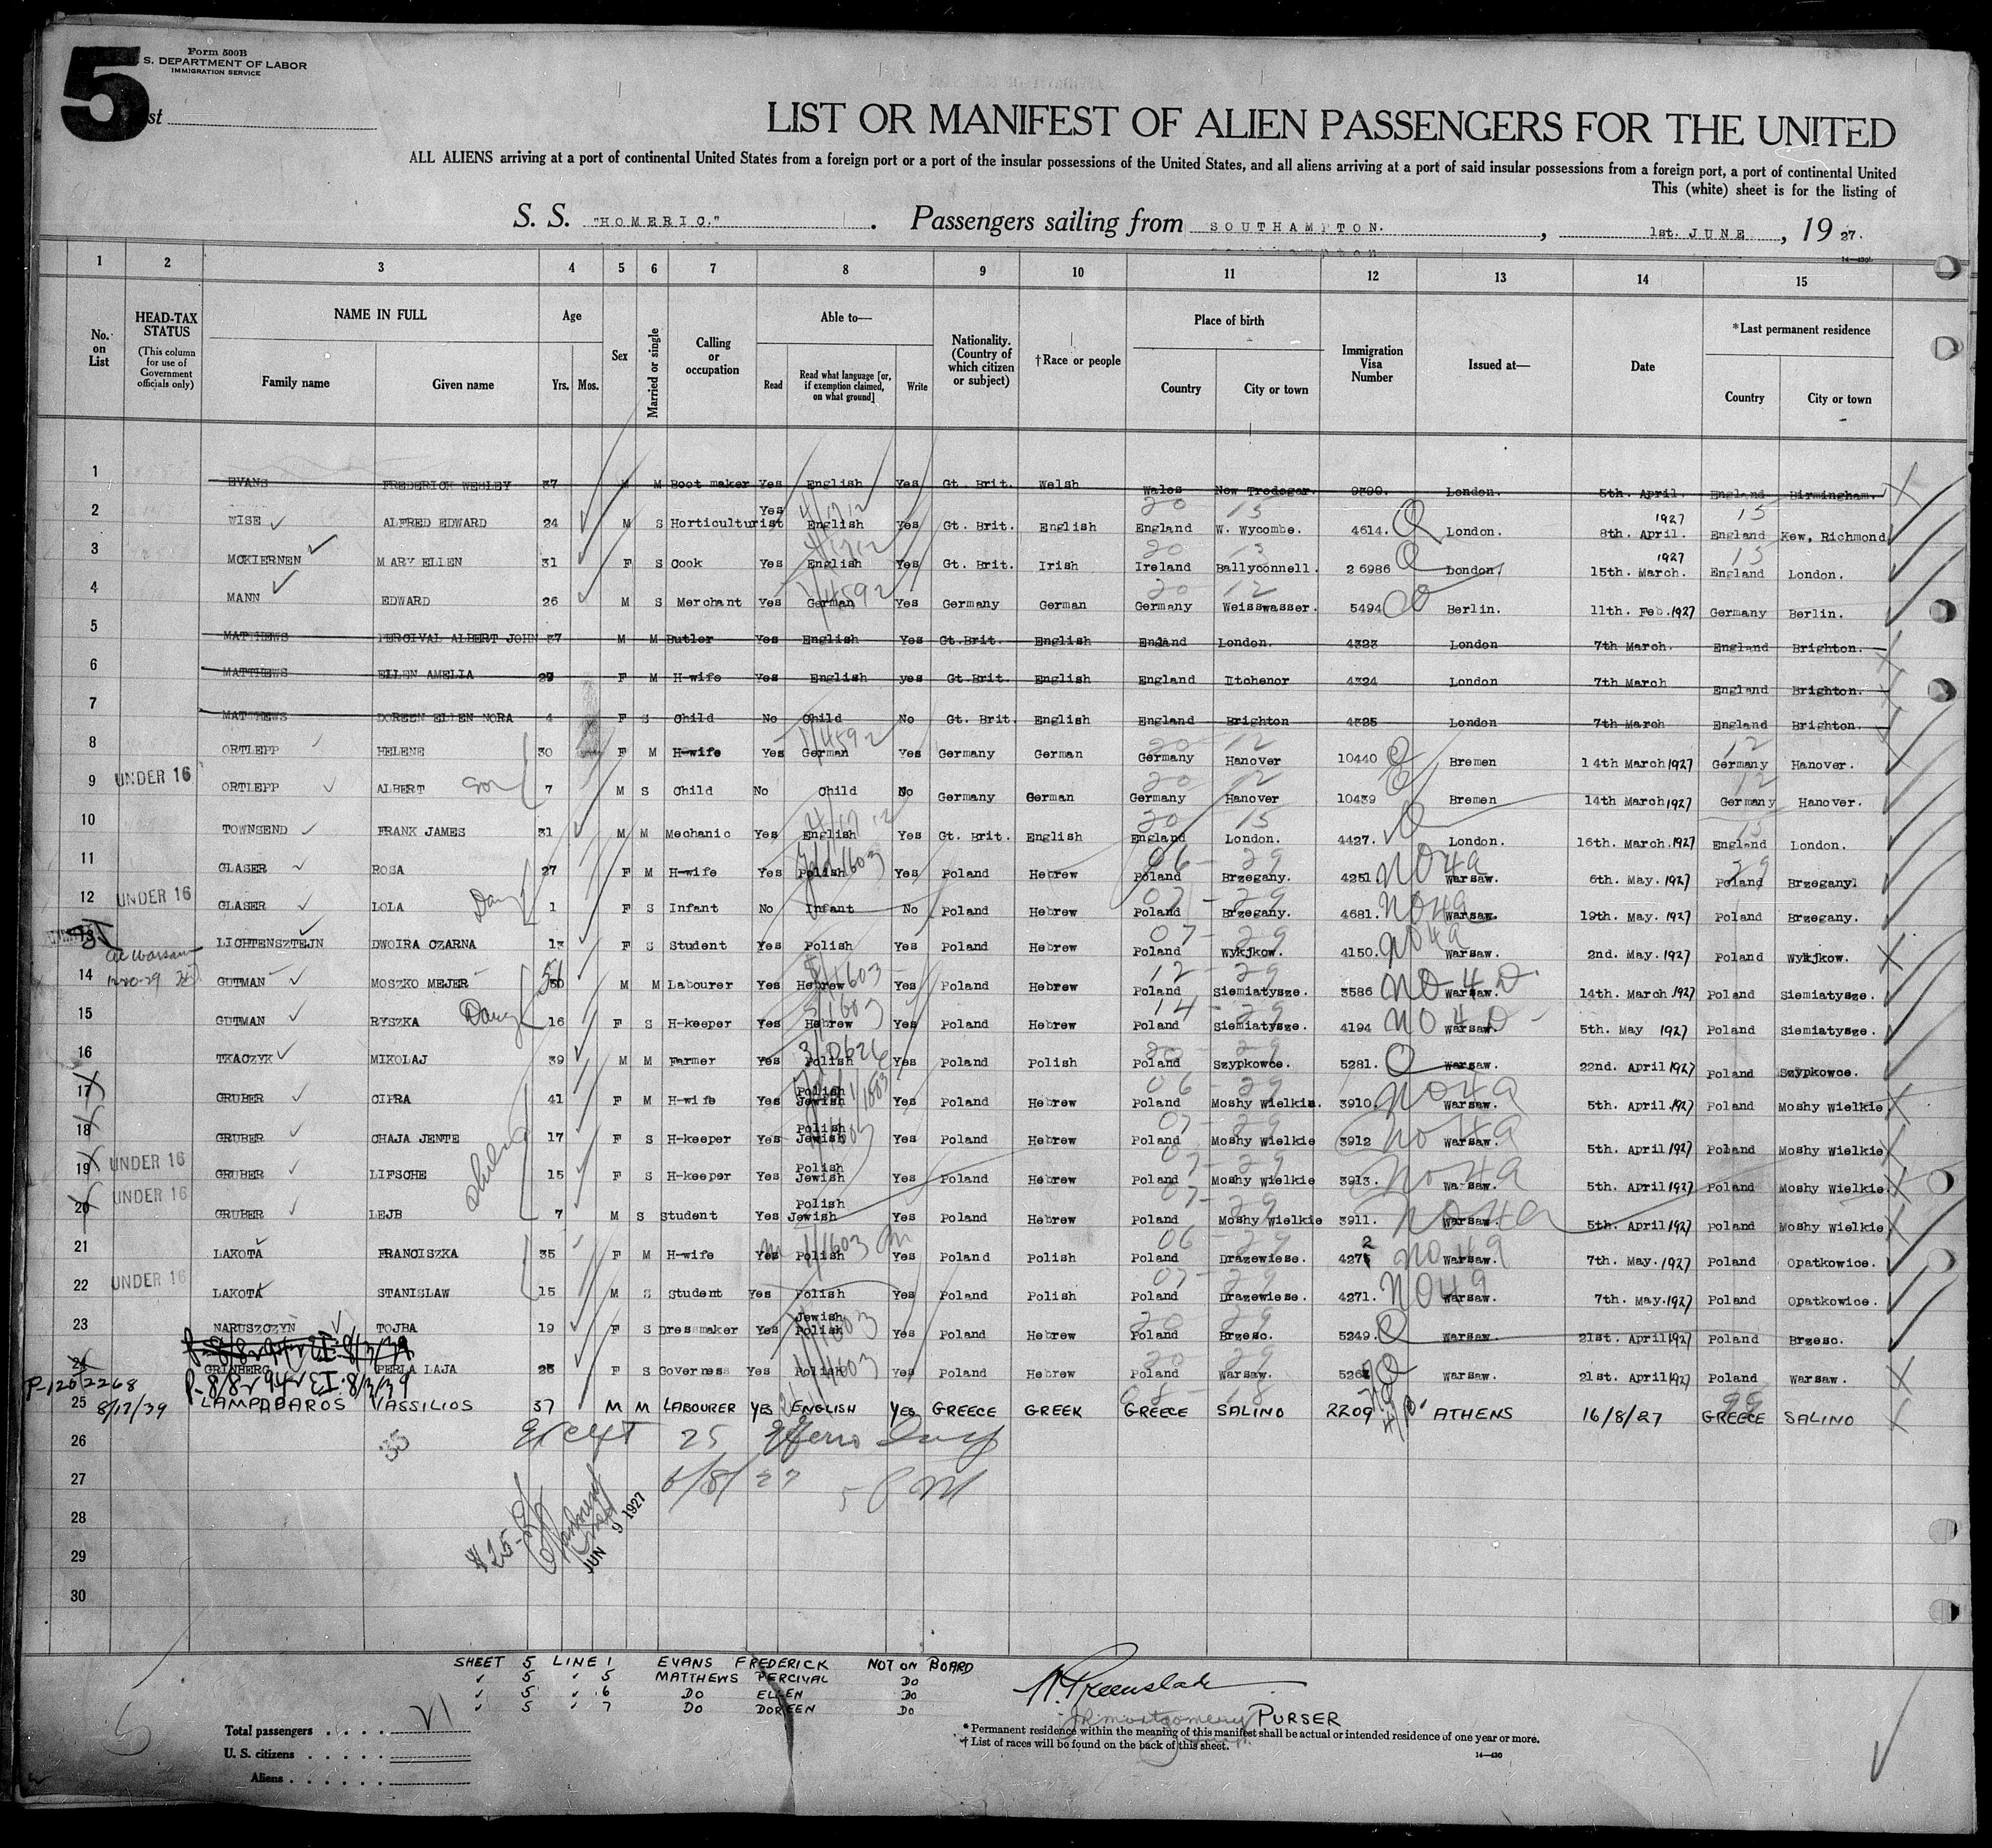 5
Form 500B
S. DEPARTMENT OF LABOR
IMMIGRATION SERVICE
st
LIST OR MANIFEST OF ALIEN PASSENGERS FOR THE UNITED
ALL ALIENS arriving at a port of continental United States from a foreign port or a port of the insular possessions of the United States, and all aliens arriving at a port of said insular possessions from a foreign port, a port of continental United
This (white) sheet is for the listing of
S. S. "HOMERIC." . Passengers sailing from SOUTHAMPTON. , 1st. JUNE , 19 27.
1 2 3 4 5 6 7 8 9 10 11 12 13 14 15
No. on List HEAD-TAX STATUS (This column for use of Government officials only) NAME IN FULL Family name Given name Age Yrs. Mos. Sex Married or single Calling or occupation Able to— Read Read what language [or, if exemption claimed, on what ground] Write Nationality. (Country of which citizen or subject) †Race or people Place of birth Country City or town Immigration Visa Number Issued at— Date *Last permanent residence Country City or town
1 EVANS FREDERICK WESLEY 37 M M Boot maker Yes English Yes Gt. Brit. Welsh Wales New Tredegar. London. 5th. April. England Birmingham.
2 WISE ALFRED EDWARD 24 M S Horticulturist Yes English Yes Gt. Brit. English England W. Wycombe. 4614. London. 8th. April. 1927 England Kew, Richmond
3 MCKIERNEN MARY ELLEN 31 F S Cook Yes English Yes Gt. Brit. Irish Ireland Ballyconnell. 26986 London. 15th. March. 1927 England London.
4 MANN EDWARD 26 M S Merchant Yes German Yes Germany German Germany Weisswasser. 5494 Berlin. 11th. Feb. 1927 Germany Berlin.
5 MATTHEWS PERCIVAL ALBERT JOHN 37 M M Butler Yes English Yes Gt.Brit. English England London. 4323 London 7th March. England Brighton.
6 MATTHEWS ELLEN AMELIA F M H-wife Yes English yes Gt.Brit. English England Itchenor 4324 London 7th March England Brighton.
7 MATTHEWS DOREEN ELLEN NORA 4 F S Child No Child No Gt. Brit. English England Brighton 4325 London 7th March England Brighton.
8 ORTLEPP HELENE 30 F M H-wife Yes German Yes Germany German Germany Hanover 10440 Bremen 14th March 1927 Germany Hanover.
9 UNDER 16 ORTLEPP ALBERT son 7 M S Child No Child No Germany German Germany Hanover 10439 Bremen 14th March 1927 Germany Hanover.
10 TOWNSEND FRANK JAMES 31 M M Mechanic Yes English Yes Gt. Brit. English England London. 4427. London. 16th. March. 1927 England London.
11 GLASER ROSA 27 F M H-wife Yes Polish Yes Poland Hebrew Poland Brzegany. 4251 NO 4a Warsaw. 6th. May. 1927 Poland Brzegany.
12 UNDER 16 GLASER LOLA Daug 1 F S Infant No Infant No Poland Hebrew Poland Brzegany. 4681. NO 4a Warsaw. 19th. May. 1927 Poland Brzegany.
LICHTENSZTEJN DWOIRA CZARNA F S Student Yes Polish Yes Poland Hebrew Poland Wykjkow. 4150. NO 4a Warsaw. 2nd. May. 1927 Poland Wykjkow.
14 GUTMAN MOSZKO MEJER 51 M M Labourer Yes Hebrew Yes Poland Hebrew Poland Siemiatysze. 3586 NO 4 D Warsaw. 14th. March 1927 Poland Siemiatysze.
15 GUTMAN RYSZKA Daug 16 F S H-keeper Yes Hebrew Yes Poland Hebrew Poland Siemiatysze. 4194 NO 4 D Warsaw. 5th. May 1927 Poland Siemiatysze.
16 TKACZYK MIKOLAJ 39 M M Farmer Yes Polish Yes Poland Polish Poland Szypkowce. 5281. Warsaw. 22nd. April 1927 Poland Szypkowce.
17 GRUBER CIPRA 41 F M H-wife Yes Polish Jewish Yes Poland Hebrew Poland Moshy Wielkie. 3910 NO 4a Warsaw. 5th. April 1927 Poland Moshy Wielkie
18 GRUBER CHAJA JENTE 17 F S H-keeper Yes Polish Jewish Yes Poland Hebrew Poland Moshy Wielkie 3912 NO 4a Warsaw. 5th. April 1927 Poland Moshy Wielkie
19 UNDER 16 GRUBER LIFSCHE 15 F S H-keeper Yes Polish Jewish Yes Poland Hebrew Poland Moshy Wielkie 3913. NO 4a Warsaw. 5th. April 1927 Poland Moshy Wielkie
20 UNDER 16 GRUBER LEJB 7 M S Student Yes Polish Jewish Yes Poland Hebrew Poland Moshy Wielkie 3911. NO 4a Warsaw. 5th. April 1927 Poland Moshy Wielkie
21 LAKOTA FRANCISZKA 35 F M H-wife Yes Polish Yes Poland Polish Poland Drazewiese. 4272 NO 4a Warsaw. 7th. May. 1927 Poland Opatkowice.
22 UNDER 16 LAKOTA STANISLAW 15 M S Student Yes Polish Yes Poland Polish Poland Drazewiese. 4271. NO 4a Warsaw. 7th. May. 1927 Poland Opatkowice.
23 NARUSZCZYN TOJBA 19 F S Dressmaker Yes Jewish Polish Yes Poland Hebrew Poland Brzesc. 5249. Warsaw. 21st. April 1927 Poland Brzesc.
24 GRINBERG PERLA LAJA F S Governess Yes Polish Yes Poland Hebrew Poland Warsaw. Warsaw. 21st. April 1927 Poland Warsaw.
25 8/17/39 LAMPABAROS VASSILIOS 37 M M LABOURER YES ENGLISH YES GREECE GREEK GREECE SALINO 2209 ATHENS 16/8/27 GREECE SALINO
26 Except 25
27 6/8/27 5 PM
28 JUN 9 1927
29
30
SHEET 5 LINE 1 EVANS FREDERICK NOT ON BOARD
✓ 5 ✓ 5 MATTHEWS PERCIVAL DO
✓ 5 ✓ 6 DO ELLEN DO
✓ 5 ✓ 7 DO DOREEN DO
PURSER
Total passengers . . . .
U. S. citizens . . . . .
Aliens . . . . . .
* Permanent residence within the meaning of this manifest shall be actual or intended residence of one year or more.
† List of races will be found on the back of this sheet.
14—430